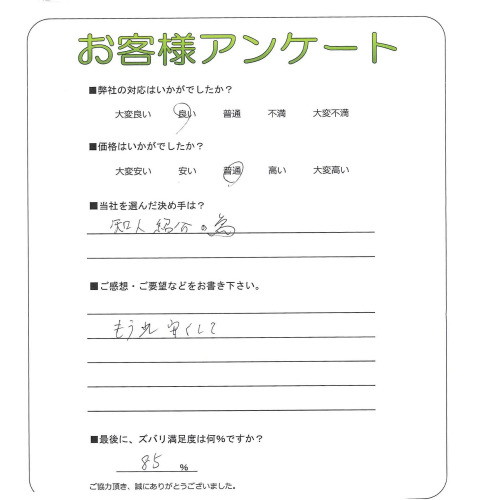 お客様アンケート
■弊社の対応はいかがでしたか？
大変良い 良い 普通 不満 大変不満
■価格はいかがでしたか？
大変安い 安い 普通 高い 大変高い
■当社を選んだ決め手は？
知人紹介の為
■ご感想・ご要望などをお書き下さい。
もう 安くして
■最後に、ズバリ満足度は何％ですか？
85 %
ご協力頂き、誠にありがとうございました。